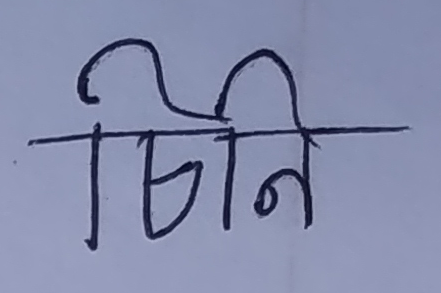 চিনি